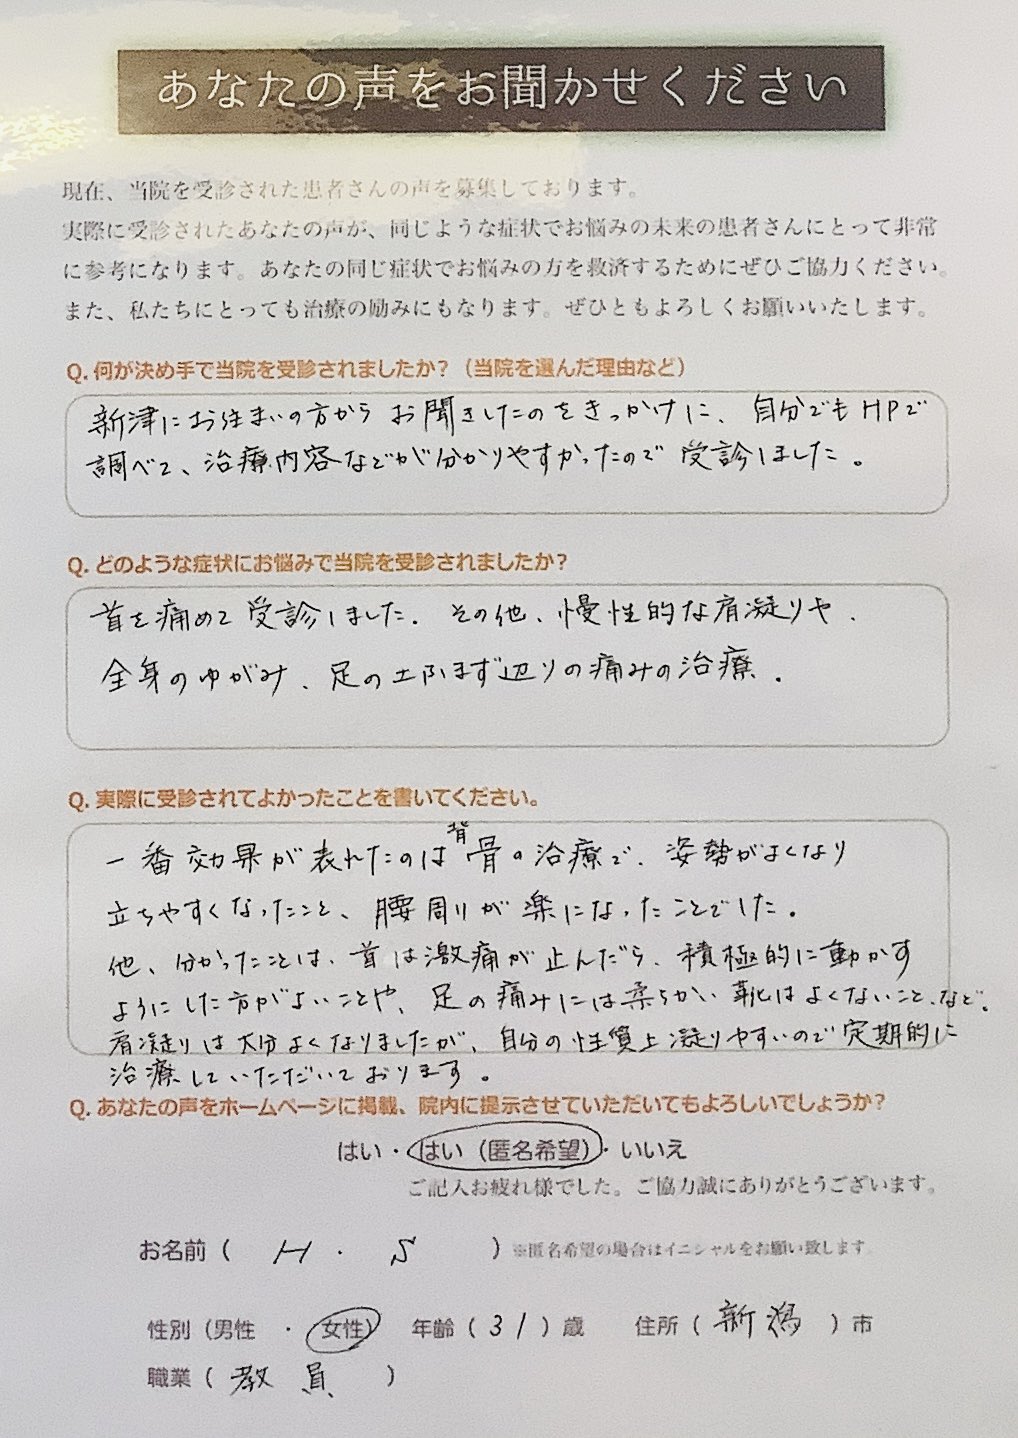 あなたの声をお聞かせください
現在、当院を受診された患者さんの声を募集しております。
実際に受診されたあなたの声が、同じような症状でお悩みの未来の患者さんにとって非常
に参考になります。あなたの同じ症状でお悩みの方を救済するためにぜひご協力ください。
また、私たちにとっても治療の励みにもなります。ぜひともよろしくお願いいたします。
Q. 何が決め手で当院を受診されましたか？（当院を選んだ理由など）
新津にお住まいの方からお聞きしたのをきっかけに、自分でもHPで
調べて、治療内容などが分かりやすかったので受診しました。
Q. どのような症状にお悩みで当院を受診されましたか？
首を痛めて受診しました。その他、慢性的な肩凝りや、
全身のゆがみ、足の土ふまず辺りの痛みの治療。
Q. 実際に受診されてよかったことを書いてください。
一番効果が表れたのは背骨の治療で、姿勢がよくなり
立ちやすくなったこと、腰周りが楽になったことでした。
他、分かったことは、首は激痛が止んだら、積極的に動かす
ようにした方がよいことや、足の痛みには柔らかい靴はよくないこと、など。
肩凝りは大分よくなりましたが、自分の性質上凝りやすいので定期的に
治療していただいております。
Q. あなたの声をホームページに掲載、院内に提示させていただいてもよろしいでしょうか？
はい・はい（匿名希望）・いいえ
ご記入お疲れ様でした。ご協力誠にありがとうございます。
お名前（ H・S ）※匿名希望の場合はイニシャルをお願い致します
性別（男性・女性） 年齢（31）歳 住所（新潟）市
職業（教員）